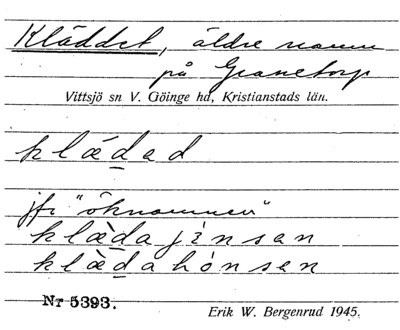 Kläddet, äldre namn
på Granetorp
Vittsjö sn V. Göinge hd, Kristianstads län.
klædad
jfr "öknamnen"
klæ̀dajinsan
klæ̀dahònsen
Nr 5393.
Erik W. Bergenrud 1945.